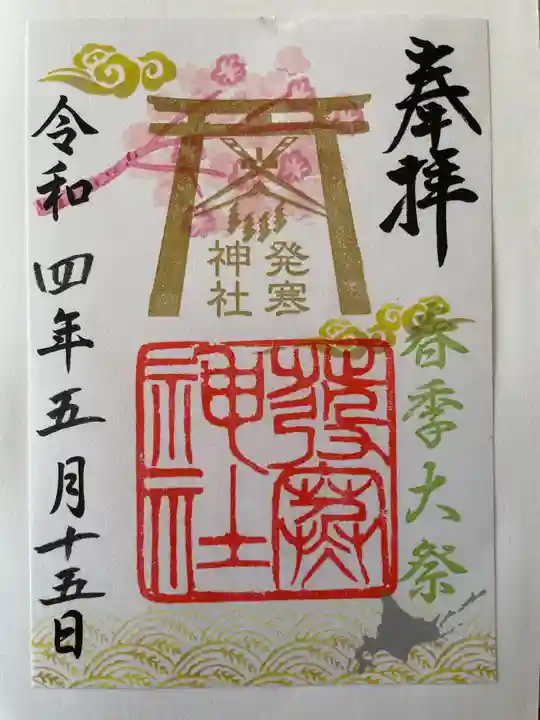 奉拝
春季大祭
発寒
神社
發寒
神社
令和四年五月十五日